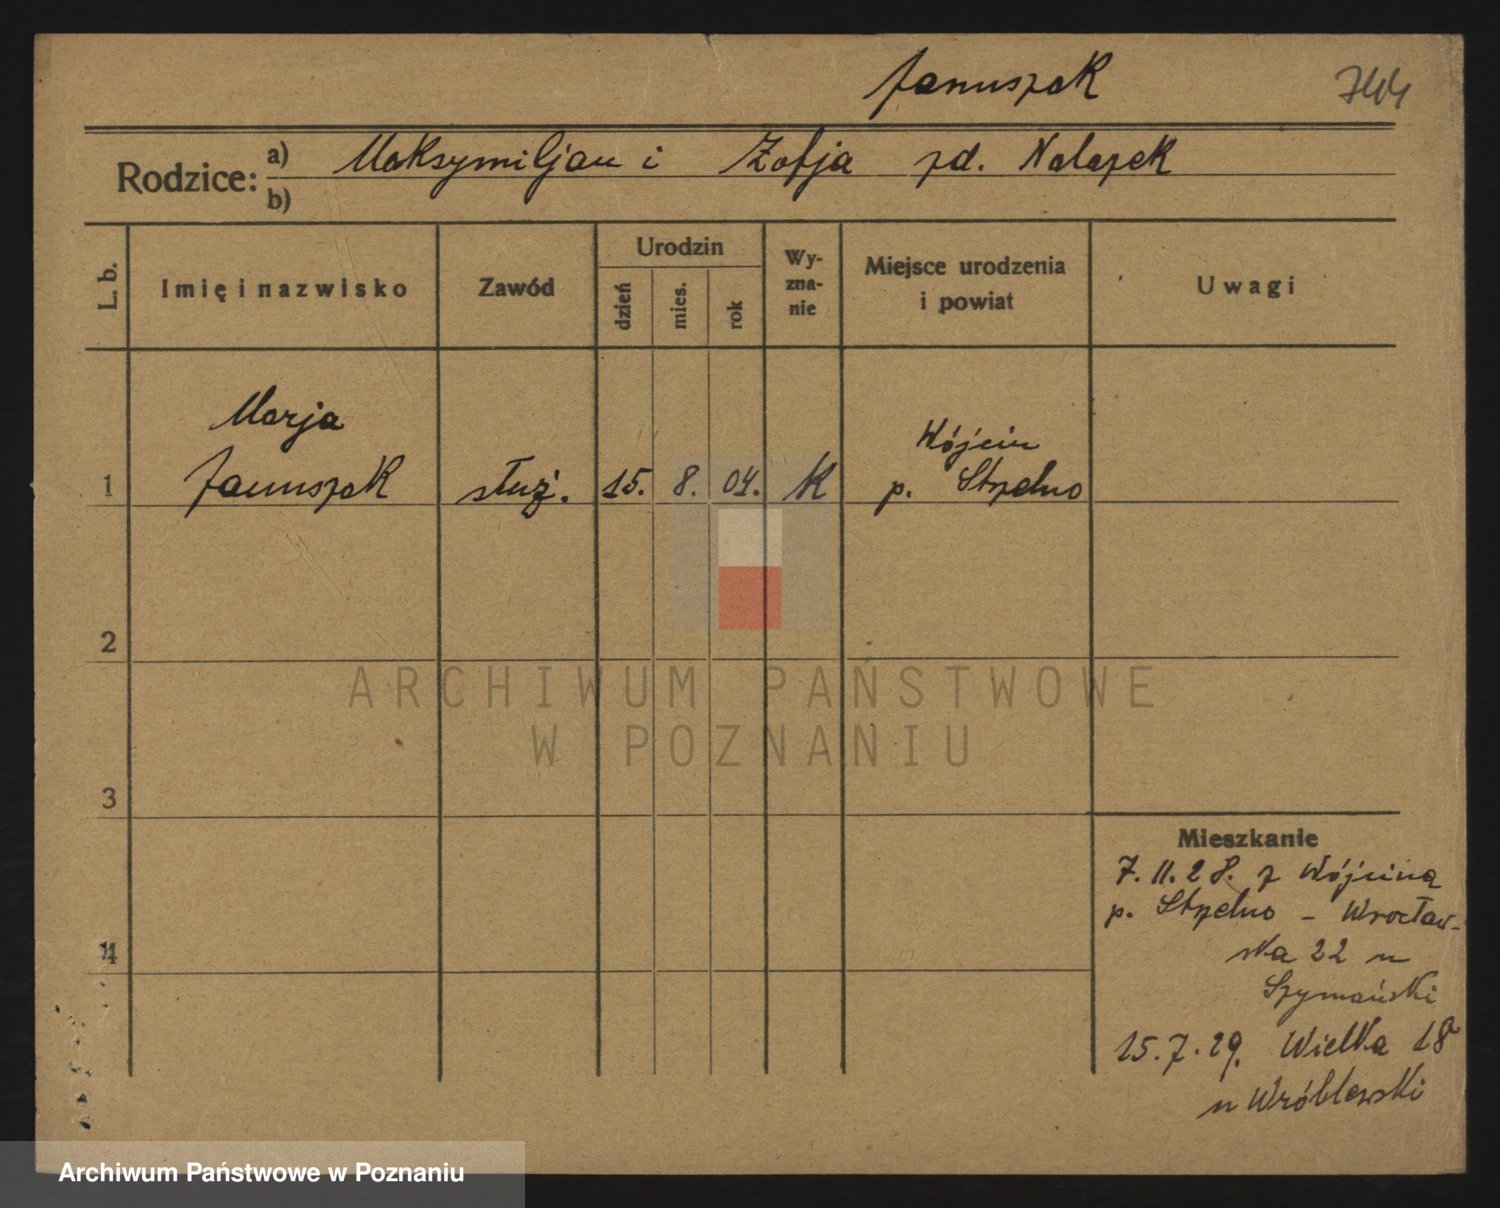 Januszak
744
Rodzice: a) Maksymiljan i Zofja zd. Nalazek
b)
L. b.
Imię i nazwisko
Zawód
Urodzin
dzień
mies.
rok
Wy-
zna-
nie
Miejsce urodzenia
i powiat
Uwagi
Marja
Wójcin
1 Januszak służ. 15. 8. 04. K p. Strzelno
2
ARCHIWUM PAŃSTWOWE
W POZNANIU
3
Mieszkanie
7.11.28. z Wójcina
p. Strzelno - Wrocław-
ska 22 u
4
Szymański
15.7.29. Wielka 18
u Wróblewski
Archiwum Państwowe w Poznaniu